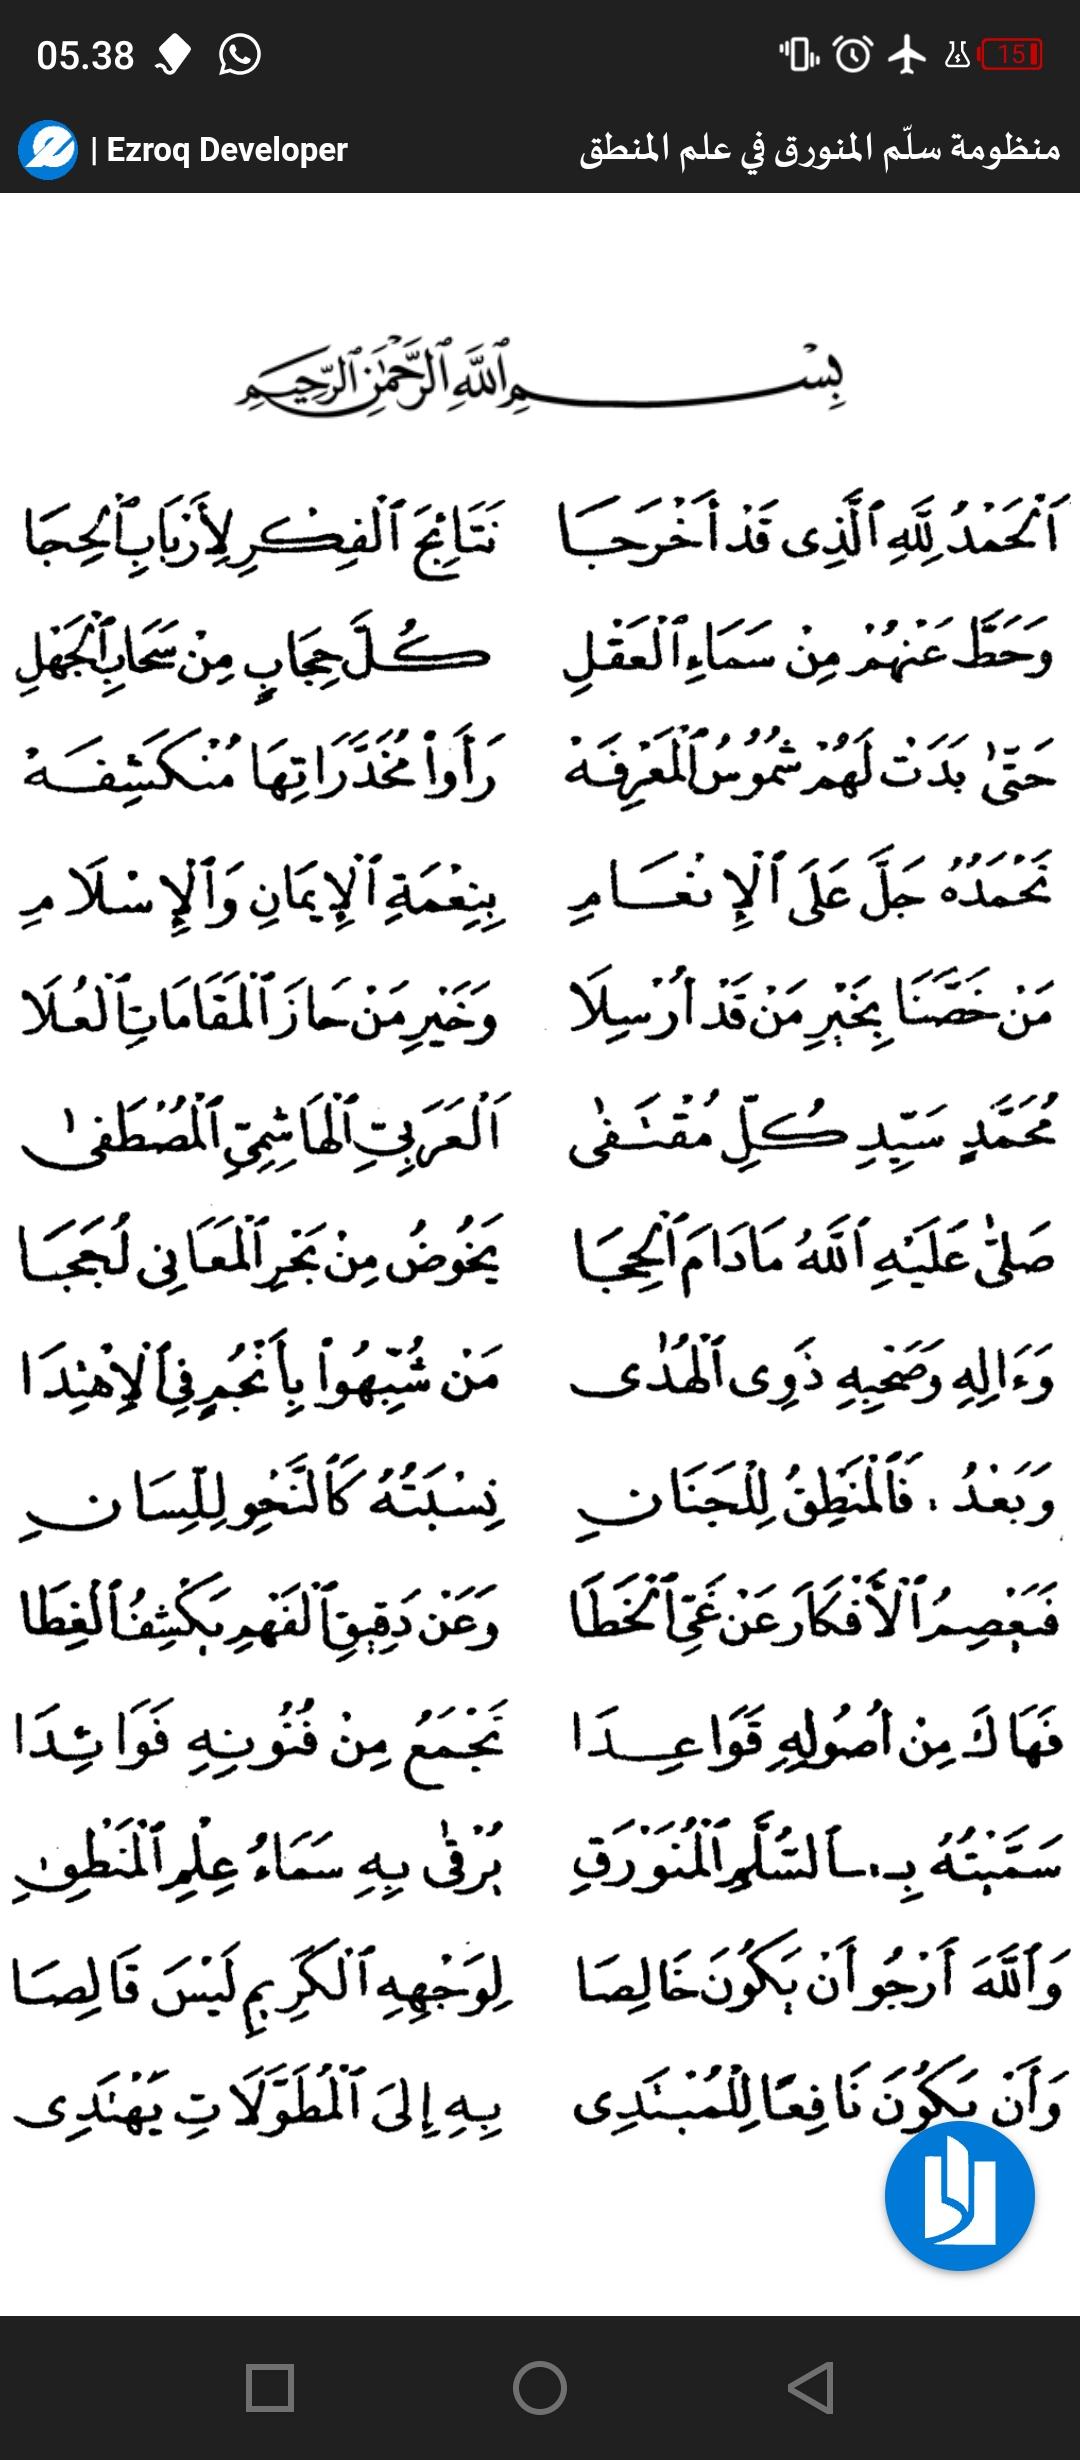 05.38
15
| Ezroq Developer
منظومة سلّم المنورق في علم المنطق
بِسْمِ ٱللَّهِ ٱلرَّحْمَٰنِ ٱلرَّحِيمِ
ٱَلْحَمْدُ لِلَّهِ ٱلَّذِى قَدْ أَخْرَجَا نَتَائِجَ ٱلْفِكْرِ لِأَرْبَابِ ٱلْحِجَا
وَحَطَّ عَنْهُمْ مِنْ سَمَاءِ ٱلْعَقْلِ كُلَّ حِجَابٍ مِنْ سَحَابِ ٱلْجَهْلِ
حَتَّىٰ بَدَتْ لَهُمْ شُمُوسُ ٱلْمَعْرِفَهْ رَأَوْا مُخَدَّرَاتِهَا مُنْكَشِفَهْ
نَحْمَدُهُ جَلَّ عَلَى ٱلْإِنْعَامِ بِنِعْمَةِ ٱلْإِيمَانِ وَٱلْإِسْلَامِ
مَنْ خَصَّنَا بِخَيْرِ مَنْ قَدْ أُرْسِلَا وَخَيْرِ مَنْ حَازَ ٱلْمَقَامَاتِ ٱلْعُلَا
مُحَمَّدٍ سَيِّدِ كُلِّ مُقْتَفَى ٱَلْعَرَبِيِّ ٱلْهَاشِمِيِّ ٱلْمُصْطَفَىٰ
صَلَّىٰ عَلَيْهِ ٱللَّهُ مَادَامَ ٱلْحِجَا يَخُوضُ مِنْ بَحْرِ ٱلْمَعَانِى لُجَجَا
وَءَالِهِ وَصَحْبِهِ ذَوِى ٱلْهُدَٰى مَنْ شُبِّهُوا۟ بِأَنْجُمٍ فِي ٱلْإِهْتِدَا
وَبَعْدُ : فَٱلْمَنْطِقُ لِلْجَنَانِ نِسْبَتُهُ كَٱلنَّحْوِ لِلِّسَانِ
فَيَعْصِمُ ٱلْأَفْكَارَ عَنْ غَيِّ ٱلْخَطَا وَعَنْ دَقِيقِ ٱلْفَهْمِ يَكْشِفُ ٱلْغِطَا
فَهَاكَ مِنْ أُصُولِهِ قَوَاعِدَا تَجْمَعُ مِنْ فُنُونِهِ فَوَائِدَا
سَمَّيْتُهُ بِـ.ـٱلسُّلَّمِ ٱلْمُنَوْرَقِ يُرْقَىٰ بِهِ سَمَاءُ عِلْمِ ٱلْمَنْطِقِ
وَٱللَّهَ أَرْجُو أَنْ يَكُونَ خَالِصَا لِوَجْهِهِ ٱلْكَرِيمِ لَيْسَ قَالِصَا
وَأَنْ يَكُونَ نَافِعًا لِلْمُبْتَدِى بِهِ إِلَى ٱلْمُطَوَّلَاتِ يَهْتَدِى